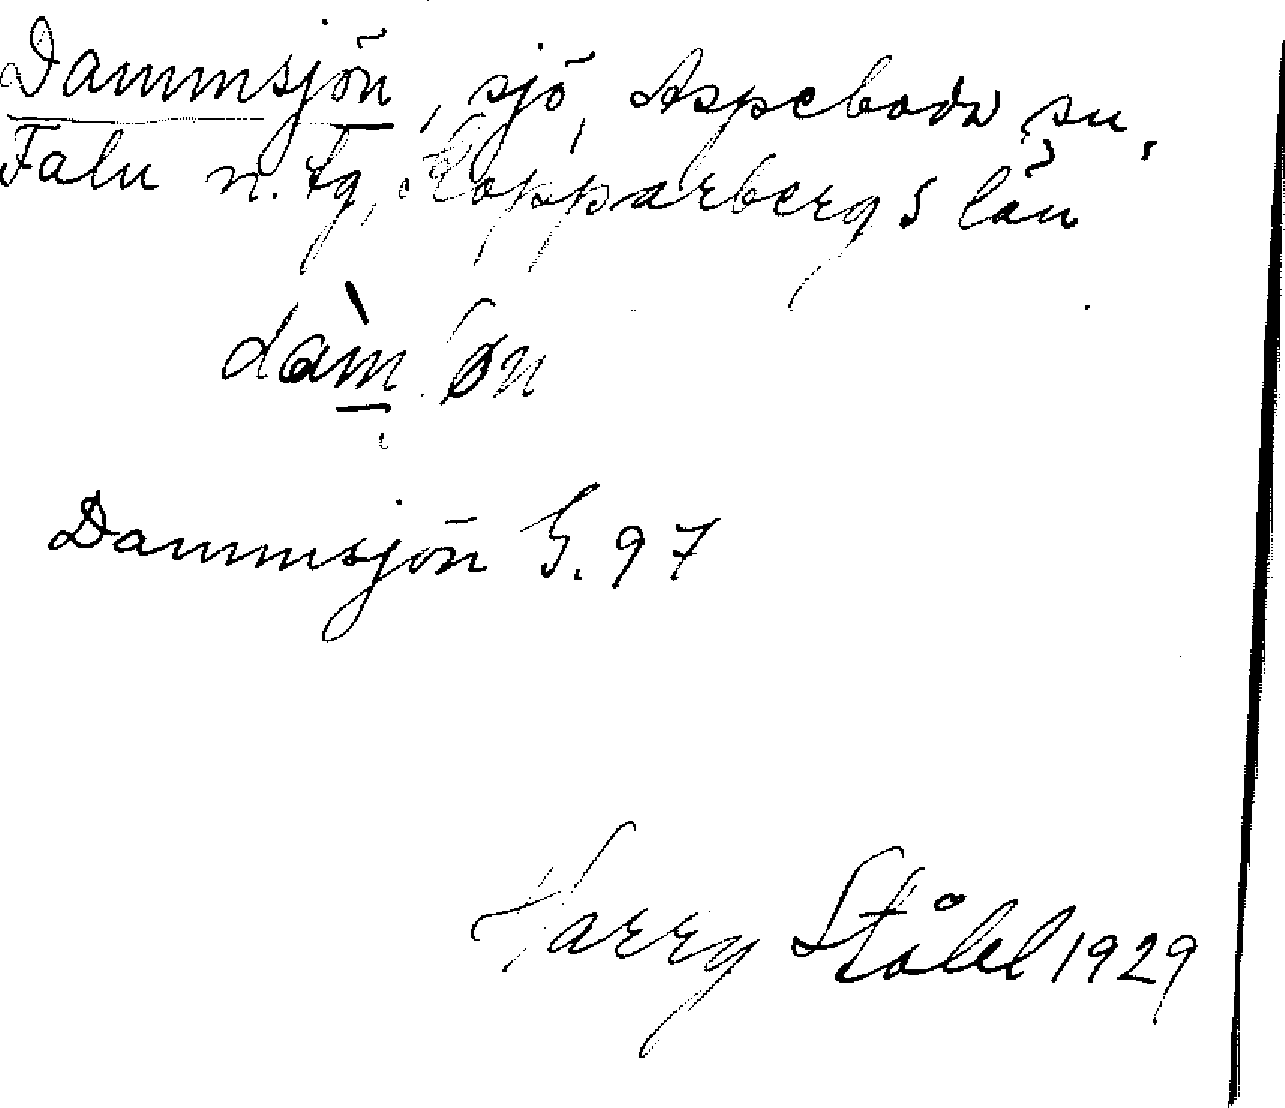 Dammsjön, sjö, Aspeboda sn,
Falu n. tg, Kopparbergs län
dàm ʃøn
Dammsjön G. 97
Harry Ståhl 1929